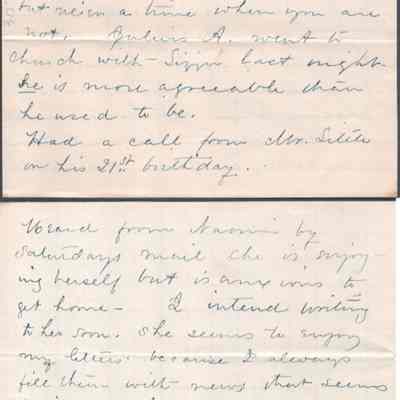 but never a time when you are
not. A. went to
church with Lizzie last night
he is more agreeable than
he used to be.
Had a call from Mr.
on his 21st birthday.
Heard from Naomi by
Saturdays mail she is enjoy-
ing herself but is anxious to
get home - I intend writing
to her soon. she seems to enjoy
my letters. because I always
fill them with news that seems